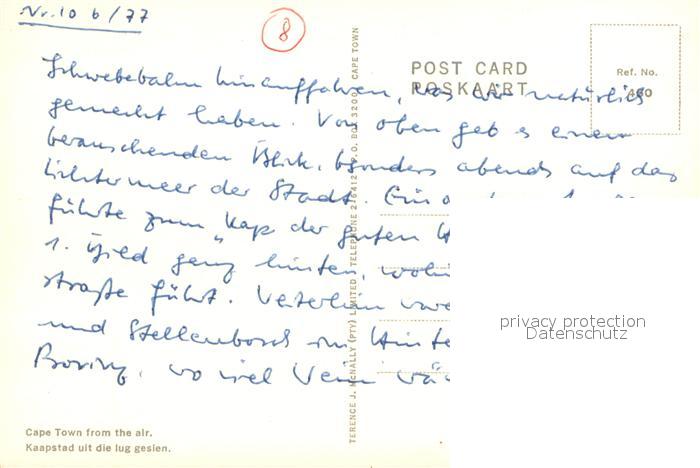 Nr. 10 6/77
8
POST CARD
POSKAART
Ref. No.
Schwebebahn hinauffahren, was wir natürlich
gemacht haben. Von oben gab es einen
berauschenden Blick, bsonders abends auf das
Lichtermeer der Stadt. Ein
führte zum "Kap der guten
1. Bild ganz hinten, wohin
straße führt. Weiterhin
und Stellenbosch im
wo viel Wein
TERENCE J. McNALLY (PTY) LIMITED TELEPHONE 2-6412 P.O. BOX 3200 CAPE TOWN
privacy protection
Datenschutz
Cape Town from the air.
Kaapstad uit die lug gesien.